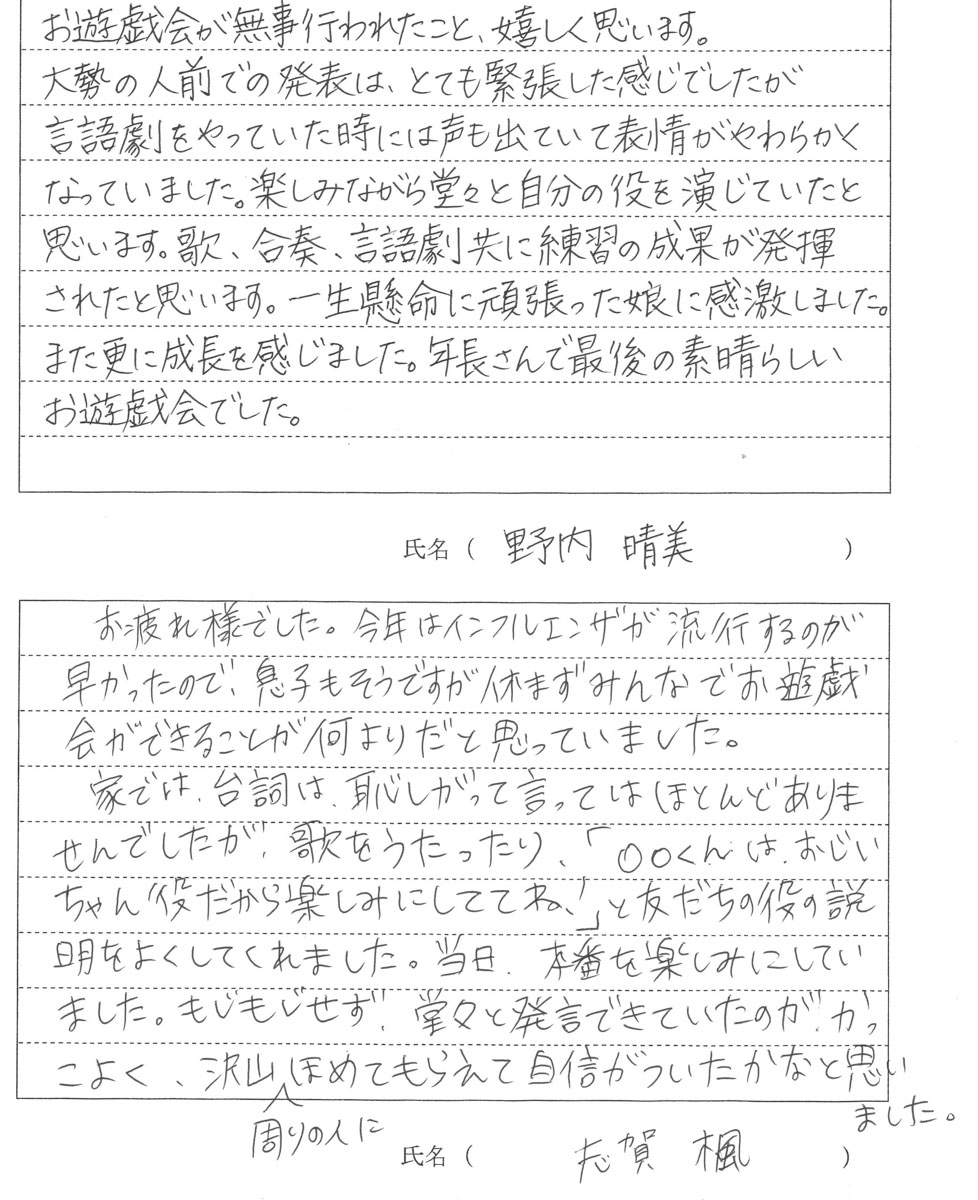 お遊戯会が無事行われたこと、嬉しく思います。
大勢の人前での発表は、とても緊張した感じでしたが
言語劇をやっていた時には声も出ていて表情がやわらかく
なっていました。楽しみながら堂々と自分の役を演じていたと
思います。歌、合奏、言語劇共に練習の成果が発揮
されたと思います。一生懸命に頑張った娘に感激しました。
また更に成長を感じました。年長さんで最後の素晴らしい
お遊戯会でした。
氏名（ 野内 晴美 ）
お疲れ様でした。今年はインフルエンザが流行するのが
早かったので、息子もそうですが休まずみんなでお遊戯
会ができることが何よりだと思っていました。
家では、台詞は、恥しがって言ってはほとんどありま
せんでしたが、歌をうたったり、「〇〇くんは、おじい
ちゃん役だから楽しみにしててね、」と友だちの役の説
明をよくしてくれました。当日、本番を楽しみにしてい
ました。もじもじせず、堂々と発言できていたのが、かっ
こよく、沢山ほめてもらえて自信がついたかなと思い
ました。
周りの人に
氏名（ 志賀 楓 ）